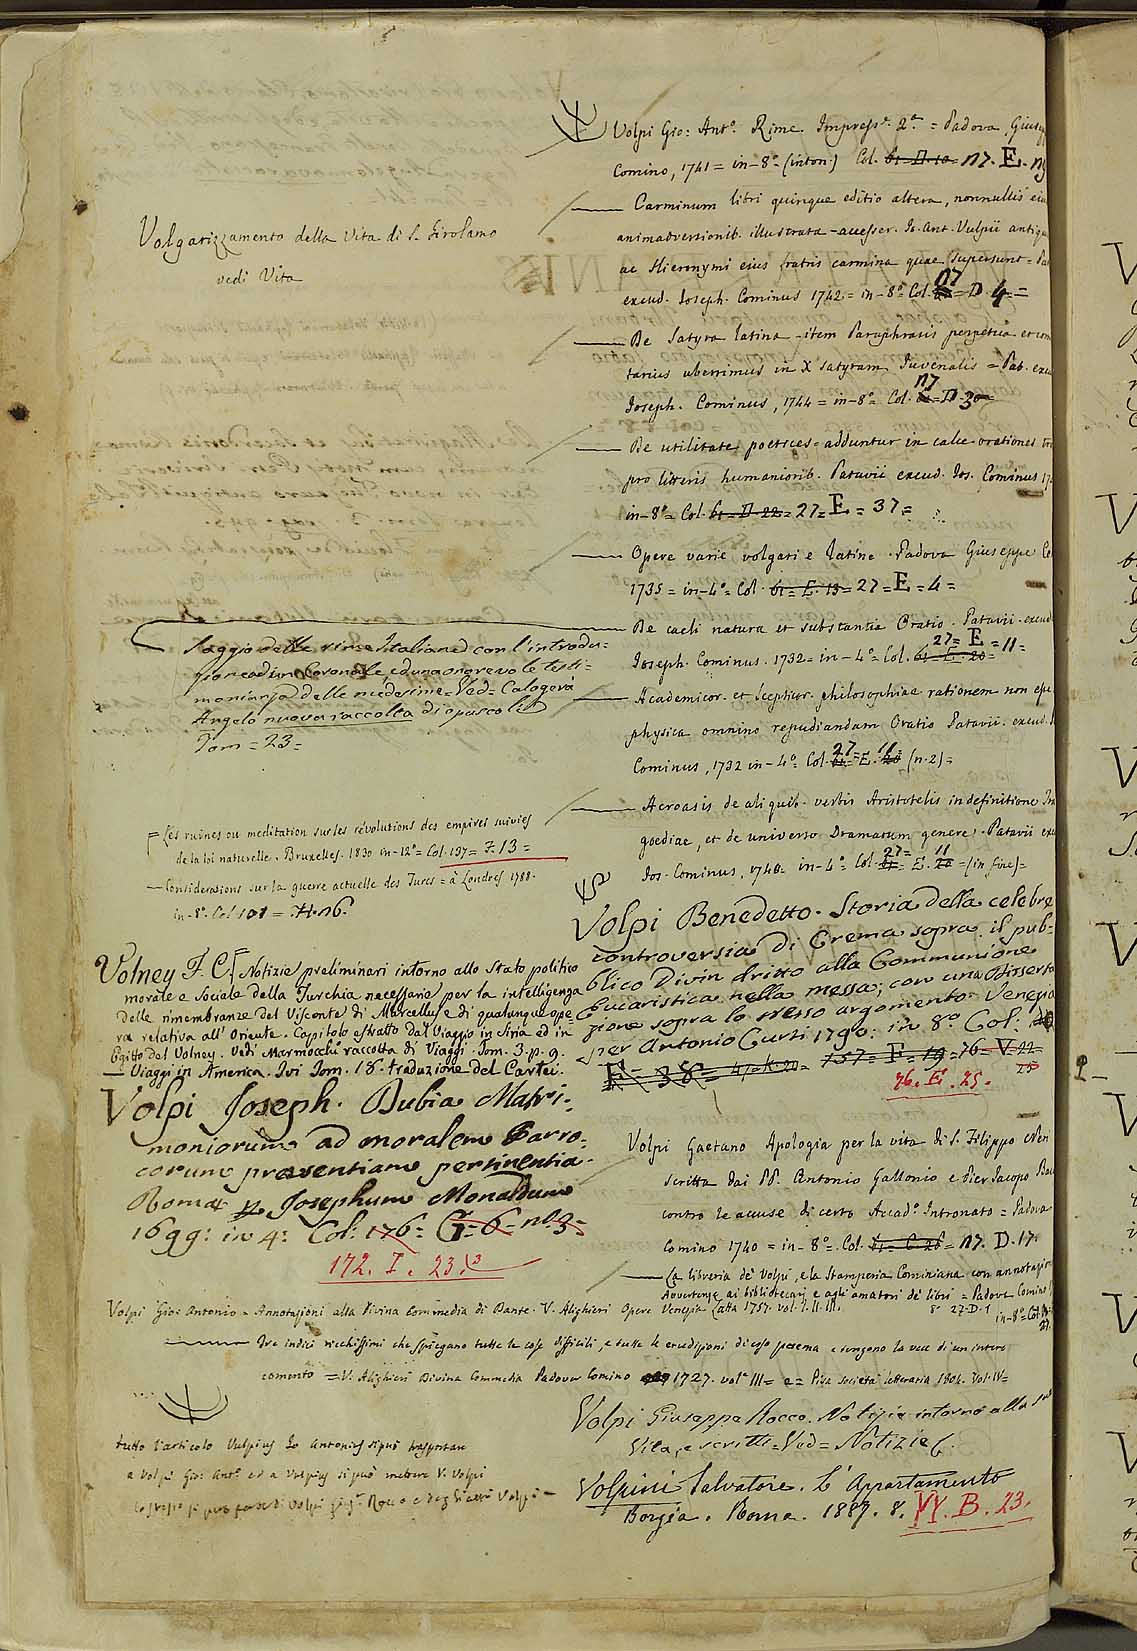 Volgarizzamento della Vita di S. Girolamo
vedi Vita
Saggio delle rime Italiane con l'introdu=
monianza delle medesime = Ved = Calogerà
Angelo nuova raccolta d'opuscoli
Tom = 23 =
Les ruines ou meditation sur les révolutions des empires suivies
de la loi naturelle. Bruxelles. 1830 in-12º = Col. 137 = F. 13 =
— Considerations sur la guerre actuelle des Turcs = à Londres 1788.
in-8º. Col. 101 = H. 16.
Volney F. C. Notizie preliminari intorno allo stato politico
morale e sociale della Turchia necessarie per la intelligenza
delle rimembranze del Visconte di Marcellus e di qualunque ope
ra relativa all'Oriente. Capitolo estratto dal Viaggio in Siria ed in
Egitto dal Volney. Vedi Marmocchi raccolta di Viaggi. Tom. 3. p. 9.
— Viaggi in America. Ivi Tom. 18. traduzione del Cartei.
Volpi Joseph. Dubia Matri=
moniorum ad moralem Parro=
corum praesentiam pertinentia.
Romae Josephum Monaldum
1699: in 4: Col: 176: G = 6 = nº. 3 =
172. I. 23.
Volpi Gio: Antonio = Annotazioni alla Divina Commedia di Dante. V. Alighieri Opere Venezia Zatta 1757. vol. I. II. III.
—— Tre indici ricchissimi che spiegano tutte le cose difficili, e tutte le erudizioni di esso poema e tengono la vece di un intero
comento = V. Alighieri Divina Commedia Padova Comino 1727. vol. III = e = Pisa società letteraria 1804. Vol. IV =
tutto l'articolo Vulpius Jo Antonius si può trasportare
a Volpi Gio: Antº. ed a Vulpius si può mettere V. Volpi
Volpi Gio: Antº. Rime. Impressº. 2ª. = Padova, Giusep
Comino, 1741 = in-8º. (inton.) Col. 61 = D. 10 = 17. E.
—— Carminum libri quinque editio altera, nonnullis eiu
animadversionib. illustrata - accesser. Jo. Ant. Vulpii antiqu
ac Hieronymi eius fratris carmina quae supersunt = Pat
excud. Joseph. Cominus 1742 = in-8º. Col. 17 = D. 4 =
—— De Satyra latina - item Paraphrasis perpetua et com
tarius uberrimus in X satyram Juvenalis = Pat. excu
Joseph. Cominus, 1744 = in-8º = Col. 17 = D. 30 =
—— De utilitate poetices = adduntur in calce orationes
pro litteris humanioribus. Patavii excud. Jos. Cominus
in-8º = Col. 61 = D. 22 = 27 = E. = 37 =
—— Opere varie volgari e latine. Padova Giuseppe Co
1735 = in-4º = Col. 61 = E. 13 = 27 = E = 4 =
—— De caeli natura et substantia Oratio. Patavii. excud
Joseph. Cominus. 1732 = in-4º = Col. 61 = E. 20 = 27 = E = 11 =
—— Academicor. et Scepticor. philosophiae rationem non
physica omnino repudiandam Oratio Patavii. excud.
Cominus, 1732 in-4º = Col. 27 = E. 11 = (n. 2) =
—— Acroasis de aliquib. verbis Aristotelis in definitione Tra
goediae, et de universo Dramatum genere. Patavii exc
Jos. Cominus, 1740. in-4º = Col. 27 = E. 11 = (in fine) =
Volpi Benedetto. Storia della celebre
controversia di Crema sopra il pub=
blico Divin dritto alla Communione
Eucaristica nella messa; con una disserta
zione sopra lo stesso argomento. Venezia
per Antonio Curti 1790: in 8º. Col:
F = 38 = 47 = K. 20 = 157 = F = 19 = 76 = V 22
76. E. 25.
Volpi Gaetano Apologia per la vita di S. Filippo Neri
scritta dai PP. Antonio Gallonio e Pier Jacopo Bac
contro le accuse di certo Accadº. Intronato = Padova
Comino 1740 = in-8º. Col. 61 = C. 26 = 17. D. 17.
—— La libreria de' Volpi, e la Stamperia Cominiana con annotazion
Avvertenze ai bibliotecari e agli amatori di libri = Padova Comino
8º 27. D. 1
in-8º = Col.
Volpi Giuseppe Rocco. Notizie intorno alla sua
Vita, e scritti = Ved = Notizie.
Volpini Salvatore. L'Appartamento
Borgia. Roma. 1887. 8. VI. B. 23.